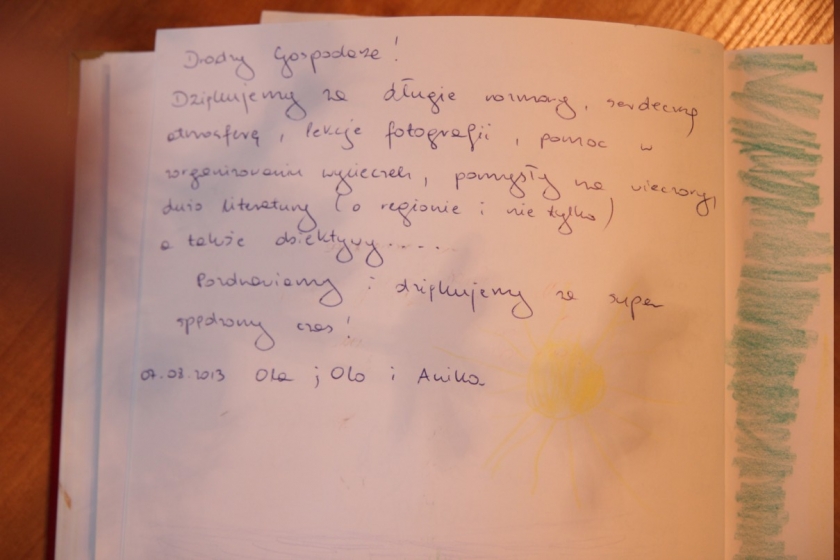 Drodzy Gospodarze!
Dziękujemy za długie rozmowy, serdeczną
atmosferę, lekcje fotografii, pomoc w
zorganizowaniu wycieczek, pomysły na wieczory,
dużo literatury (o regionie i nie tylko)
a także obiektywy.....
Pozdrawiamy i dziękujemy za super
spędzony czas!
07.03.2013 Ola j Olo i Anika